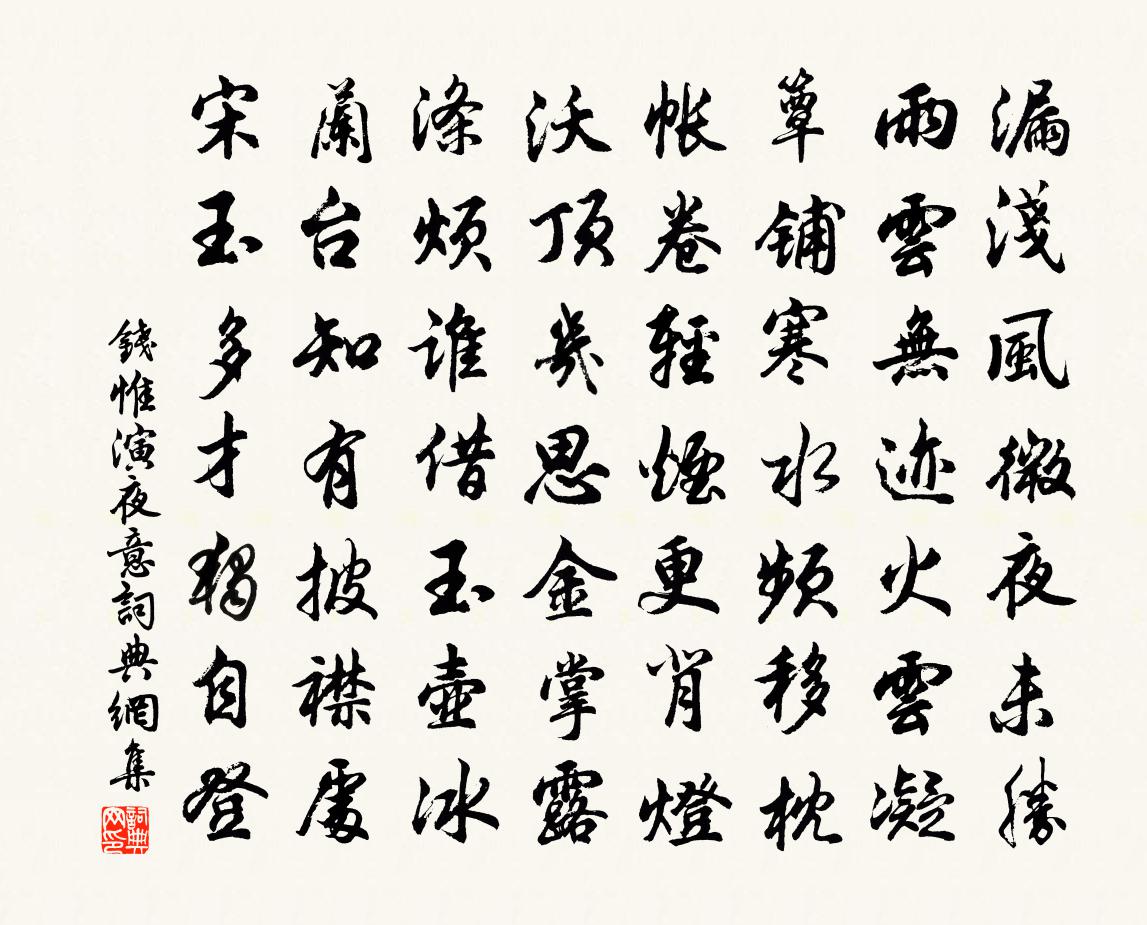 漏淺風微夜未勝
雨雲無迹火雲凝
簟鋪寒水頻移枕
帳卷輕煙更背燈
沃頂幾思金掌露
滌煩誰借玉壺冰
蘭台知有披襟處
宋玉多才獨自登
錢惟演夜意詞典網集
詞典网印